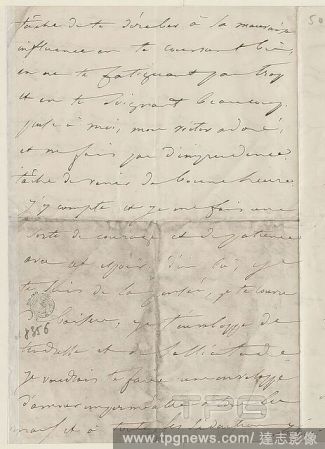 tâche de te dérober à la mauvaise
influence en te couvrant bien
en ne te fatiguant pas trop
et en te soignant beaucoup.
pense à moi, mon Victor adoré,
et ne fais pas d'imprudence.
tâche de venir de bonne heure
j'y compte et je me fais une
sorte de courage et de patience
avec cet espoir. d'ici là, je
te
de baisers, je t'enveloppe de
tendresse et de sollicitude
je voudrais te faire une enveloppe
d'amour imperméable
et à toutes les
8356
50
TPG
www.tpgnews.com / 達志影像